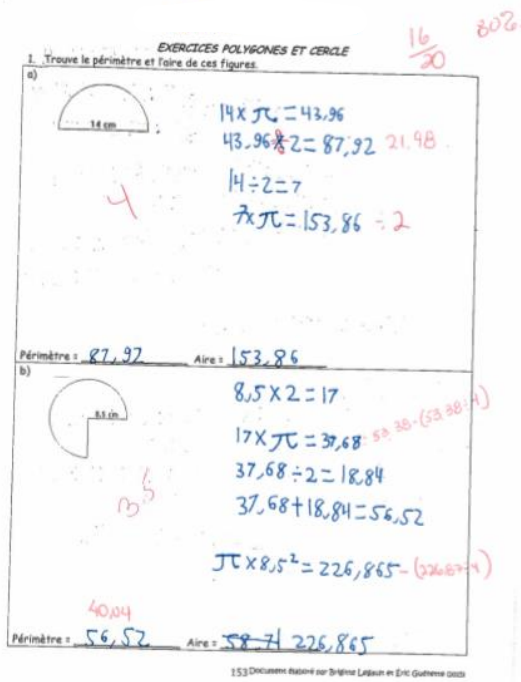 80%
16/20
EXERCICES POLYGONES ET CERCLE
1. Trouve le périmètre et l'aire de ces figures.
a)
14 cm
14 x π = 43,96
43.96 x 2 = 87,92 21.98
14 ÷ 2 = 7
7 x π = 153,86 ÷ 2
4
Périmètre = 87,92 Aire = 153,86
b)
8.5 cm
8,5 x 2 = 17
17 x π = 37,68 53.38-(53.38÷4)
37,68 ÷ 2 = 18,84
37,68 + 18,84 = 56,52
3,5
π x 8,5² = 226,865 - (226.87÷4)
40,04
Périmètre = 56,52 Aire = 58.71 226,865
153 Document élaboré par